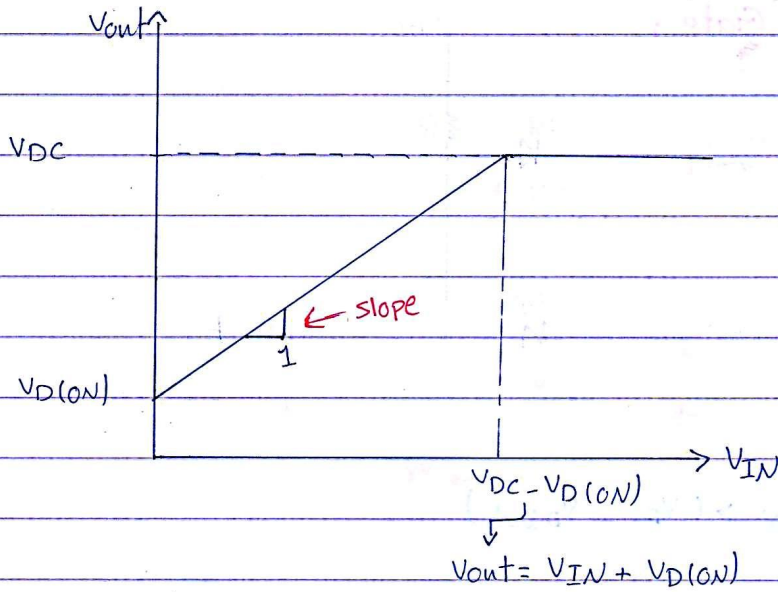 Vout
VDC
slope
1
VD(ON)
VIN
VDC - VD(ON)
Vout = VIN + VD(ON)